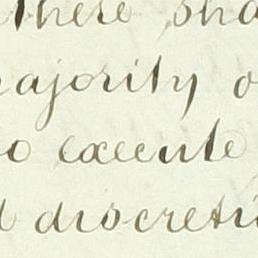 there sha
ajority o
o execute
d discreti